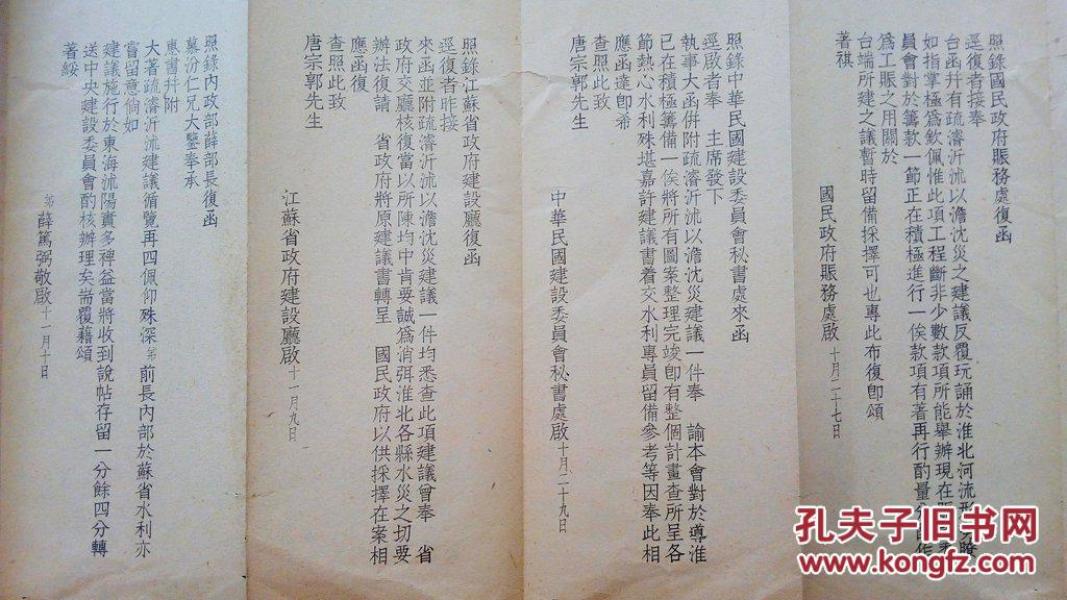 照錄國民政府賑務處復函
逕復者接奉
台函幷有疏濬沂沭以澹沈災之建議反覆玩誦於淮北河流形
瞭如指掌極爲欽佩惟此項工程斷非少數款項所能舉辦現在
員會對於籌款一節正在積極進行一俟款項有著再行酌量
爲工賑之用關於
台端所建之議暫時留備採擇可也專此布復卽頌
著祺
國民政府賑務處啟 十月二十七日
照錄中華民國建設委員會秘書處來函
逕啟者奉 主席發下
執事大函併附疏濬沂沭以澹沈災建議一件奉 諭本會對於導淮
已在積極籌備一俟將所有圖案整理完竣卽有整個計畫查所呈各
節熱心水利殊堪嘉許建議書着交水利專員留備參考等因奉此相
應函達卽希
查照此致
唐宗郭先生
中華民國建設委員會秘書處啟 十月二十九日
照錄江蘇省政府建設廳復函
逕復者昨接
來函並附疏濬沂沭以澹沈災建議一件均悉查此項建議曾奉 省
政府交廳核復當以所陳均中肯要誠爲消弭淮北各縣水災之切要
辦法復請 省政府將原建議書轉呈 國民政府以供採擇在案相
應函復
查照此致
唐宗郭先生
江蘇省政府建設廳啟 十一月九日
照錄內政部薛部長復函
慕汾仁兄大鑒奉承
惠書幷附
大著疏濬沂沭建議循覽再四佩仰殊深弟前長內部於蘇省水利亦
嘗留意倘如
建議施行於東海沭陽實多裨益當將收到說帖存留一分餘四分轉
送中央建設委員會酌核辦理矣耑覆藉頌
著綏
弟薛篤弼敬啟 十一月十日
孔夫子旧书网
www.kongfz.com